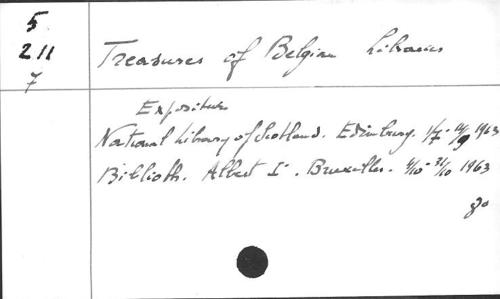 5
211
7
Treasures of Belgian Libraries
Exposition
National Library of Scotland. Edinburg. 1/7 - 10/9 1963
Biblioth. Albert I. Bruxelles. 4/10 - 31/10 1963